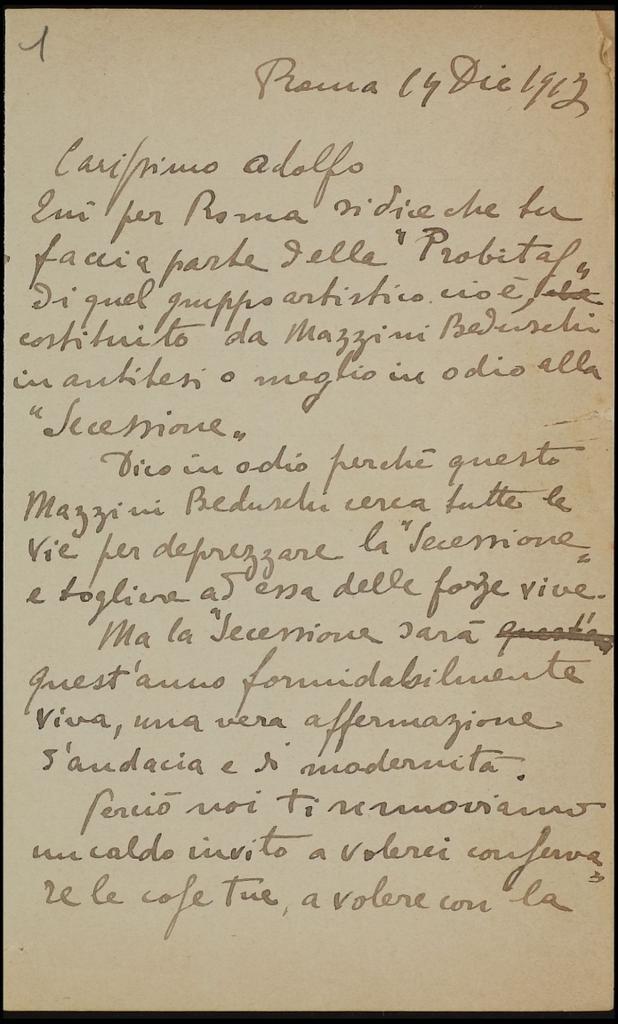 1
Roma 14 Dic 1913
Carissimo Adolfo
Qui per Roma si dice che tu
faccia parte della "Probitas„
di quel gruppo artistico cioè, che
costituito da Mazzini Beduschi
in antitesi o meglio in odio alla
"Secessione„
Dico in odio perchè questo
Mazzini Beduschi cerca tutte le
vie per deprezzare la "Secessione„
e togliere ad essa delle forze vive.
Ma la "Secessione sarà quest'an
quest'anno formidabilmente
viva, una vera affermazione
d'audacia e di modernità.
Perciò noi ti rinnoviamo
un caldo invito a volerci conserva=
re le cose tue, a volere con la